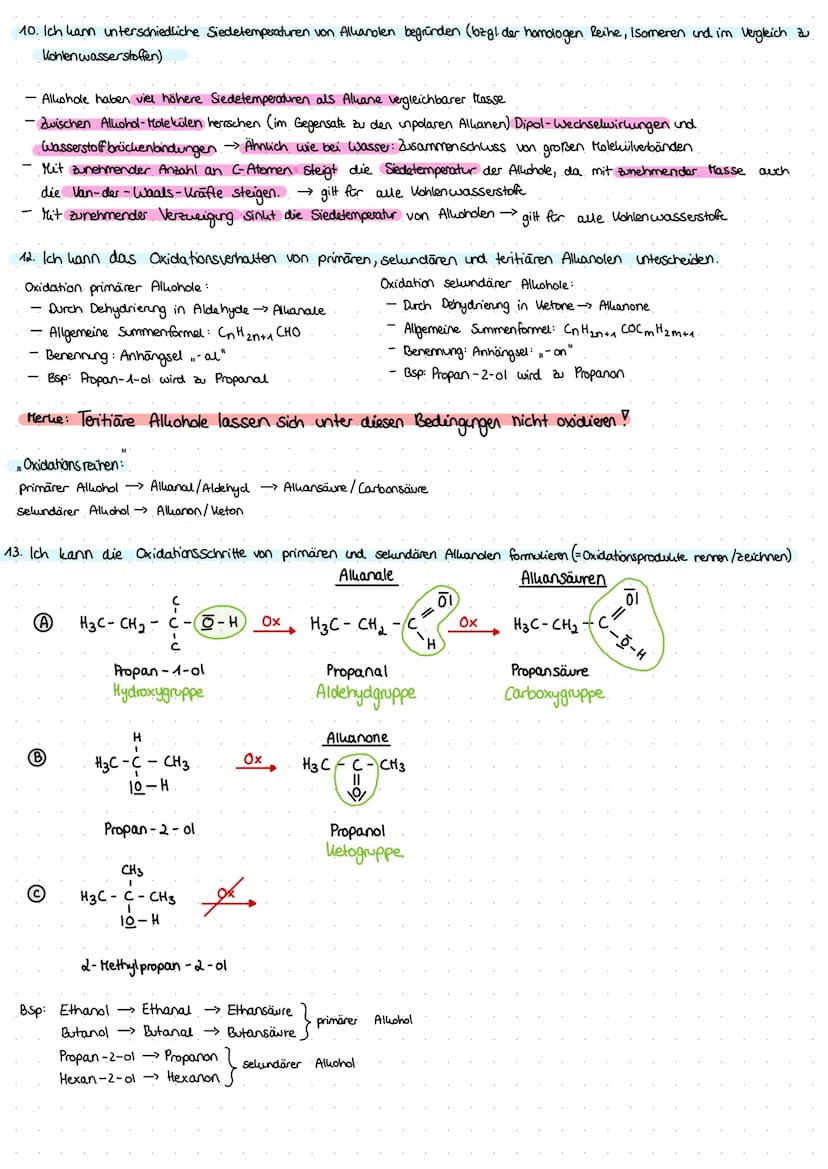 10. Ich kann unterschiedliche Siedetemperaturen von Alkanolen begründen (bzgl. der homologen Reihe, Isomeren und im Vergleich zu
Kohlenwasserstoffen)
- Alkohole haben viel höhere Siedetemperaturen als Alkane vergleichbarer Masse
- Zwischen Alkohol-Molekülen herrschen (im Gegensatz zu den unpolaren Alkanen) Dipol-Wechselwirkungen und
Wasserstoffbrückenbindungen → Ähnlich wie bei Wasser: Zusammenschluss von großen Molekülverbänden
- Mit zunehmender Anzahl an C-Atomen steigt die Siedetemperatur der Alkohole, da mit zunehmender Masse auch
die Van-der-Waals-Kräfte steigen. → gilt für alle Kohlenwasserstoffe
- Mit zunehmender Verzweigung sinkt die Siedetemperatur von Alkoholen → gilt für alle Kohlenwasserstoffe
12. Ich kann das Oxidationsverhalten von primären, sekundären und teritiären Alkanolen unterscheiden.
Oxidation primärer Alkohole:
- Durch Dehydrierung in Aldehyde → Alkanale
- Allgemeine Summenformel: CnH2n+1 CHO
- Benennung: Anhängsel „-al"
- Bsp: Propan-1-ol wird zu Propanal
Oxidation sekundärer Alkohole:
- Durch Dehydrierung in Ketone → Alkanone
- Allgemeine Summenformel: CnH2n+1 COCmH2m+1
- Benennung: Anhängsel: „-on"
- Bsp: Propan-2-ol wird zu Propanon
Merke: Teritiäre Alkohole lassen sich unter diesen Bedingungen nicht oxidieren!
„Oxidationsreihen:"
primärer Alkohol → Alkanal/Aldehyd → Alkansäure/Carbonsäure
sekundärer Alkohol → Alkanon/Keton
13. Ich kann die Oxidationsschritte von primären und sekundären Alkanolen formulieren (=Oxidationsprodukte nennen/zeichnen)
Alkanale Alkansäuren
C
A H3C-CH2-C-O-H Ox H3C-CH2-C=O Ox H3C-CH2-C=O
C H O-H
Propan-1-ol Propanal Propansäure
Hydroxygruppe Aldehydgruppe Carboxygruppe
H Alkanone
B H3C-C-CH3 Ox H3C-C-CH3
|O-H O
Propan-2-ol Propanol
Ketogruppe
CH3
C H3C-C-CH3 Ox
|O-H
2-Methylpropan-2-ol
Bsp: Ethanol → Ethanal → Ethansäure
Butanol → Butanal → Butansäure } primärer Alkohol
Propan-2-ol → Propanon
Hexan-2-ol → Hexanon } sekundärer Alkohol